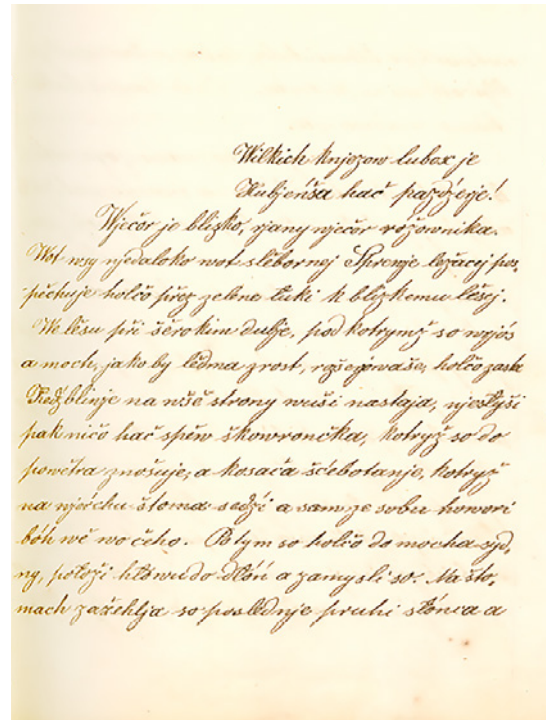 Wilkich knjezow lubosć je
Hubjeńša hać paździerje!
Wječor je blizko, rjany wječor róžownika.
Wot wsy njedaloko wot slěbornej Sprewje ležacej pos,
pěchuje holčo přez zelene łuki k blizkemu lěsej.
We lěsu při šěrokim dubje, pod kotrymž so wrjós
a moch, jako by lědma zrost, rozšěrjowaše, holčo zasta
Kedźbliwje na wšě strony wuši nastaja, njesłyši
pak ničo hač spěw škowrončka, kotryž so do
powětra znošuje, a kosaća šćebotanje, kotryž
na wjerchu štoma sedźi a sam ze sobu howori
bóh wě wo čeho. Po tym so holčo do mocha syd,
ny, położi hłowu do dłóń a zamysli so. Na što,
mach zažehlja so poslědnje pruhi słónca a